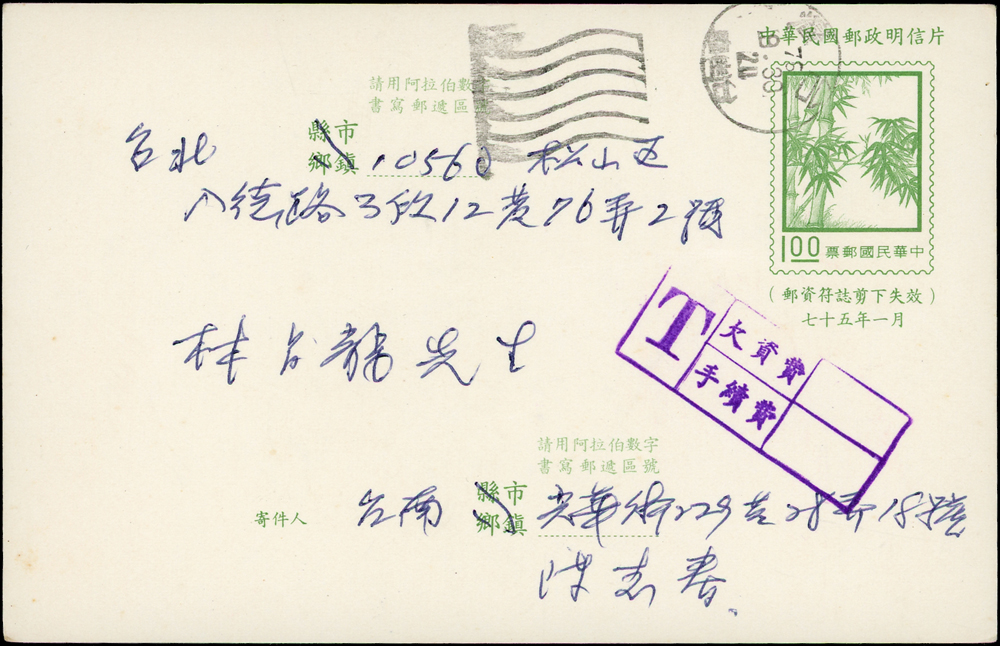 中華民國郵政明信片
請用阿拉伯數字
書寫郵遞區
台北 縣市鄉鎮 10560 松山區
八德路3段12巷76弄2號
1.00 票郵國民華中
(郵資符誌剪下失效)
七十五年一月
林台龍先生
T 欠資費
手續費
請用阿拉伯數字
書寫郵遞區號
寄件人 台南 縣市鄉鎮 光華街229巷28弄18號
陳志春